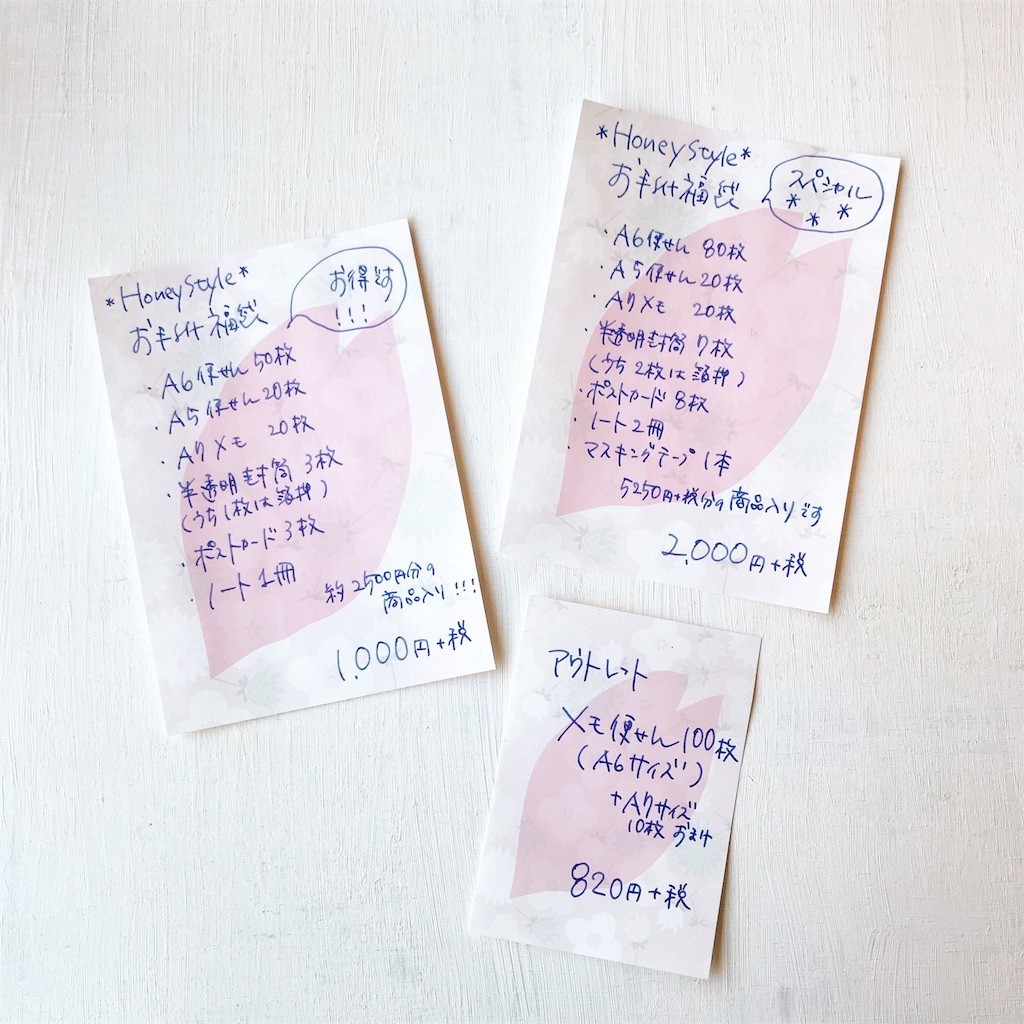 *HoneyStyle*
お手紙福袋
お得です
!!!
・A6便せん 50枚
・A5便せん 20枚
・A7メモ 20枚
・半透明封筒 3枚
(うち1枚は箔押)
・ポストカード 3枚
・ノート 1冊
約2500円分の
商品入り!!!
1,000円+税
*HoneyStyle*
お手紙福袋
スペシャル
* * *
・A6便せん 80枚
・A5便せん 20枚
・A7メモ 20枚
・半透明封筒 7枚
(うち2枚は箔押)
・ポストカード 8枚
・ノート 2冊
・マスキングテープ 1本
5250円+税分の商品入りです
2,000円+税
アウトレット
メモ便せん100枚
(A6サイズ)
+A7サイズ
10枚 おまけ
820円+税